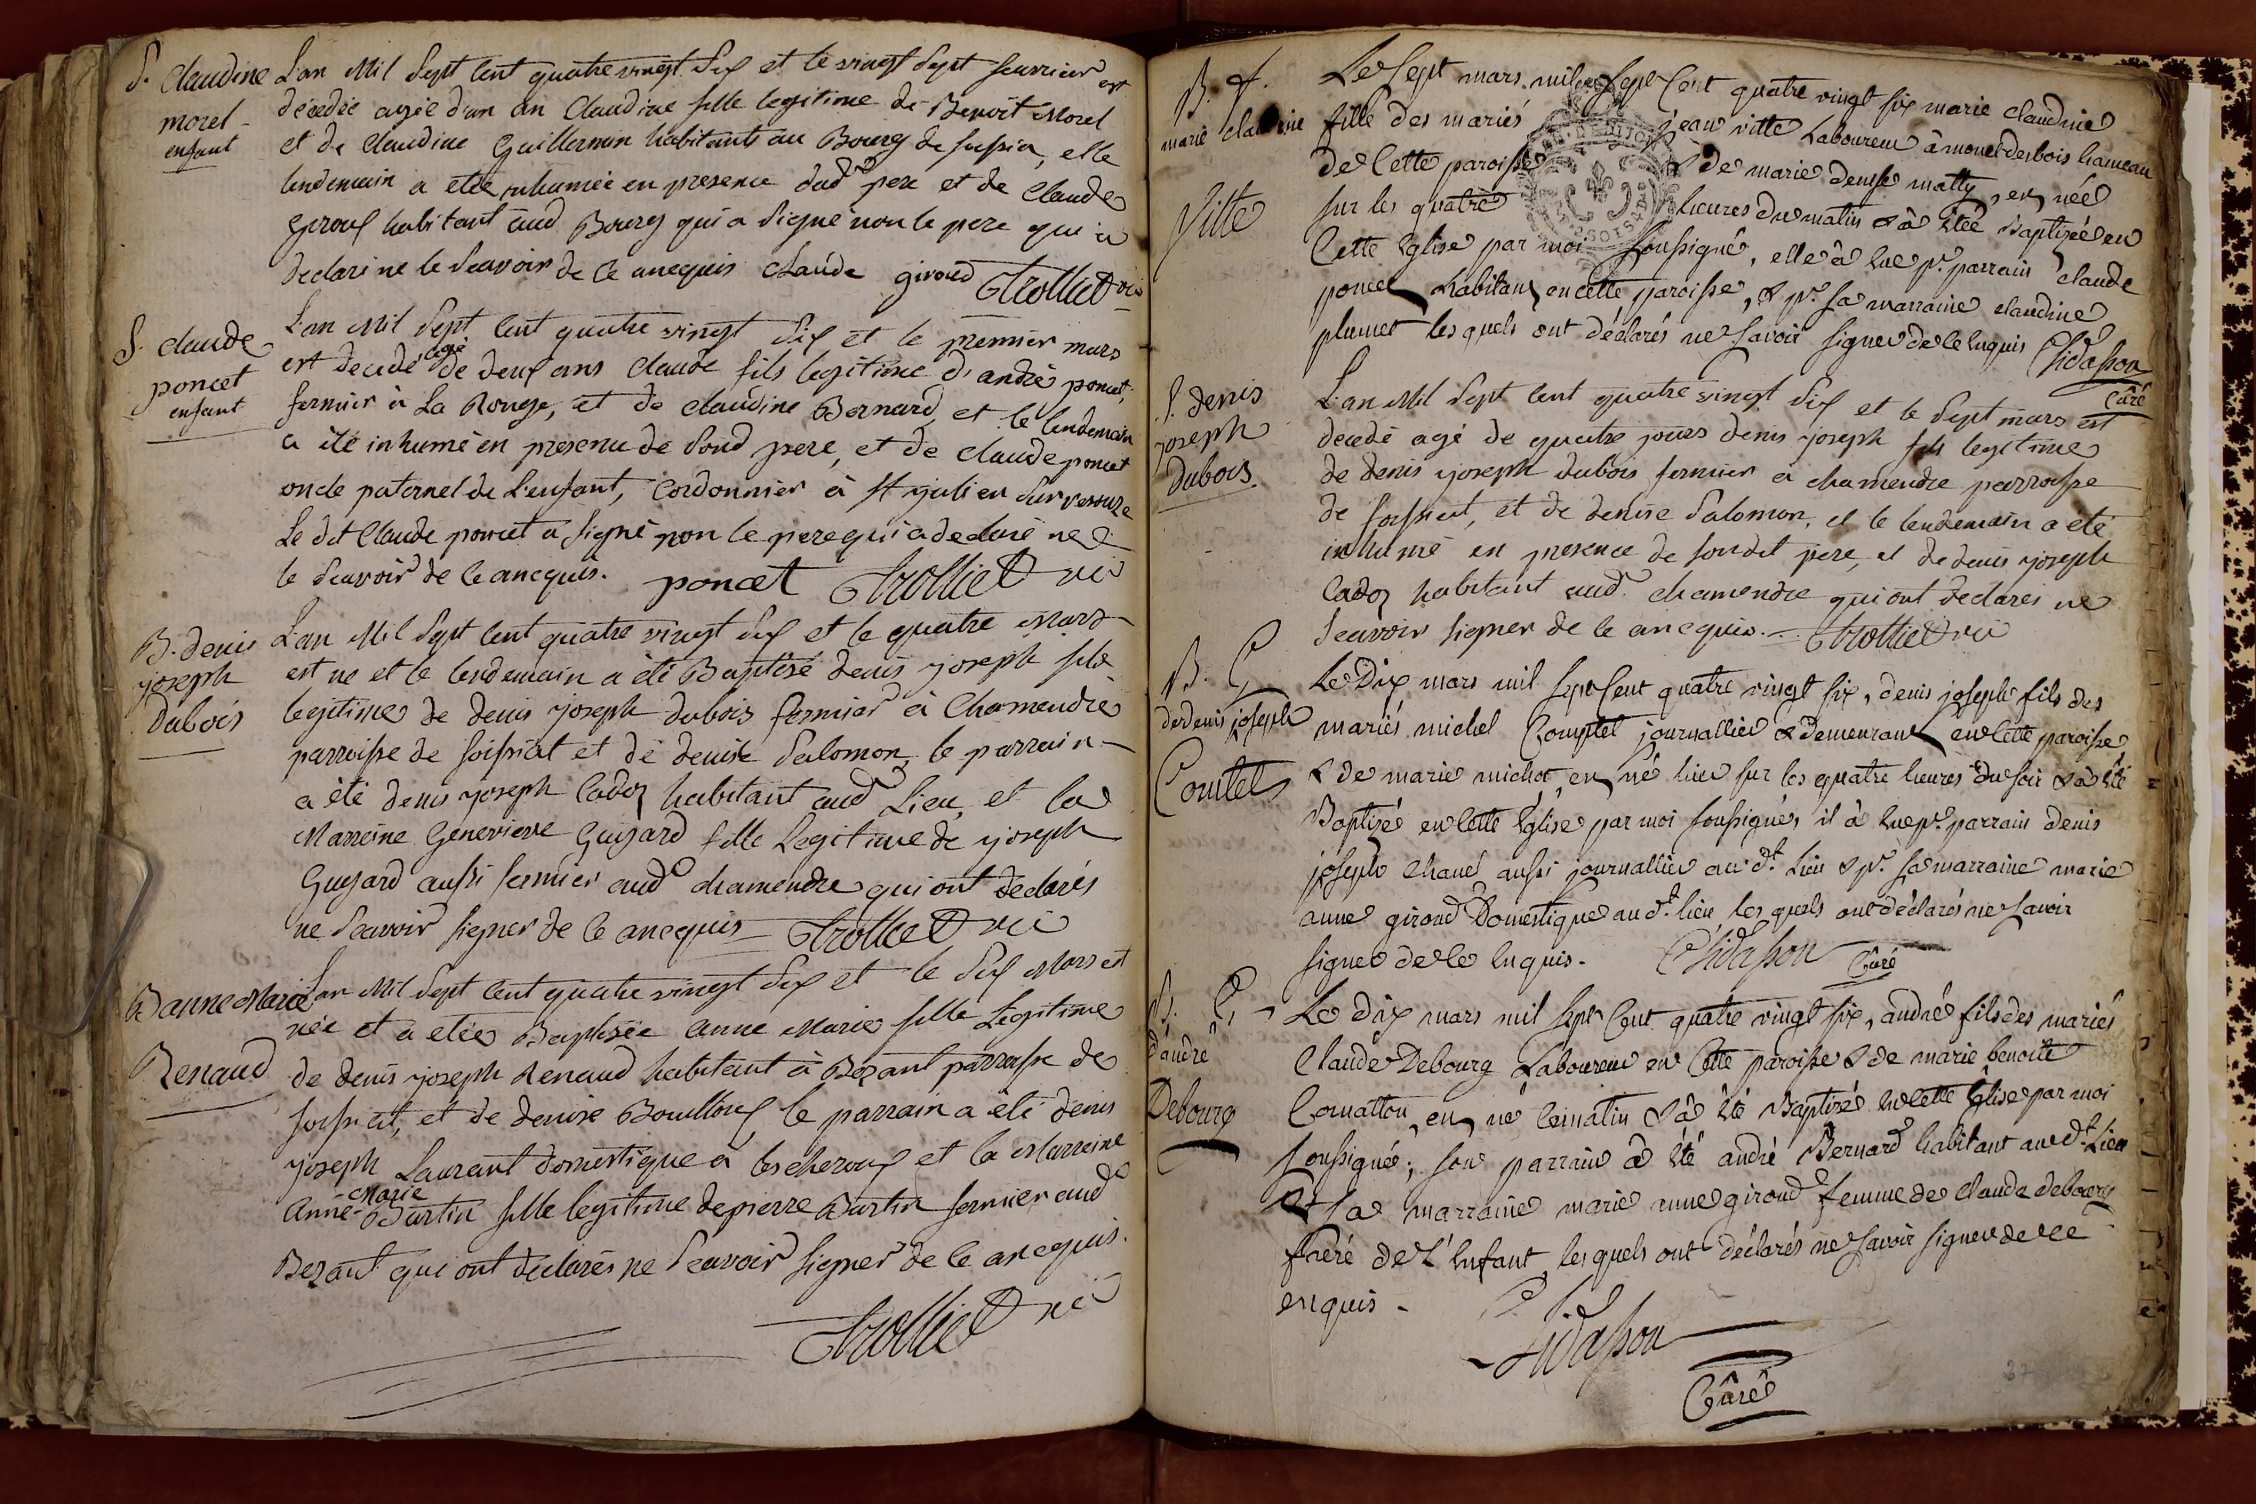 S. Claudine
morel
enfant
L'an Mil Sept cent quatre vingt Six et le vingt Sept feuvrier est
décedée agée d'un an Claudine fille legitime de Benoit Morel
et de Claudine Guillermin habitants au Bourg de , elle
lendemain a etée inhumée en presence dud pere et de Claude
giroud habitant aud Bourg qui a Signé non le pere qui a
declaré ne le Seavoir de ce anequis Claude giroud Trolliet vic
S. claude
poncet
enfant
L'an Mil Sept cent quatre vingt Six et le premier mars
est decedé agé de deux ans Claude fils legitime d'andré poncet,
fermier à La Rouge, et de Claudine Bernard et le lendemain
a été inhumé en presence de Sond pere, et de Claude poncet
oncle paternel de l'enfant, Cordonnier à St julien Sur
Le dit Claude poncet a signé non le pere qui a declaré ne
le Seavoir de ce anequis. poncet Trolliet vic
B. denis
joseph
Dubois
L'an Mil Sept cent quatre vingt Six et le quatre Mars
est né et le lendemain a été Baptisé denis joseph fils
legitime de denis joseph dubois fermier à Chamendré
parroisse de foissiat et de denise Salomon, le parrain
a été denis joseph Cadoz habitant aud Lieu, et la
Marreine Genevieve Guyard fille Legitime de joseph
Guyard aussi fermier aud chamendre qui ont declarés
ne Seavoir signer de ce anequis Trolliet vic
B anne Marie
Renaud
L'an Mil Sept cent quatre vingt Six et le Six Mars est
née et a etée Baptisée anne Marie fille Legitime
de denis joseph Renaud habitant à Bezant parroisse de
foissiat, et de denise Bouilloux, le parrain a été denis
joseph Laurant domestique à lescheroux et la Marreine
anne-Marie Burtin fille legitime de pierre Burtin fermier aud
Bezant qui ont declarés ne Seavoir signer de ce anequis.
Trolliet vic
B. f.
marie claudine
Vitte
Le Sept mars mil Sept Cent quatre vingt six marie claudine
fille des mariés jean vitte Laboureur à hameau
de Cette paroisse & de marie denise matty, en née
sur les quatre heures du matin & à étée Baptisée en
Cette Eglise par moi soussigné, elle à Eue pr. parrain Claude
poncet habitant en cette paroisse, & pr. sa marraine claudine
plumet les quels ont déclarés ne savoir signer de ce Enquis Chidasson
Curé
S. denis
joseph
Dubois.
L'an Mil Sept cent quatre vingt Six et le Sept mars est
decedé agé de quatre jours denis joseph fils legitime
de denis joseph dubois fermier à chamendre parroisse
de foissiat, et de denise Salomon, et le lendemain a été
inhumé en presence de sondit pere, et de denis joseph
Cadoz habitant aud. chamendre qui ont declarés ne
Seavoir signer de ce anequis. Trolliet vic
B. G
de denis joseph
Comtet
Le Dix mars mil sept Cent quatre vingt six, denis joseph fils des
mariés michel Comptet journallier & demeurant en Cette paroisse,
& de marie michot, en né hier sur les quatre heures du soir & à été
Baptisé en Cette Eglise par moi soussigné, il à Eue pr. parrain denis
joseph Chanel aussi journallier au dt. Lieu & pr. sa marraine marie
anne giroud Domestique au dt. lieu les quels ont déclarés ne savoir
signer de ce Enquis. Chidasson Curé
B. G.
d'andré
Debourg
Le dix mars mil sept Cent quatre vingt six, andré fils des mariés
Claude Debourg Laboureur en Cette paroisse & de marie benoite
Cornatton, en né ce matin & à été Baptisé en Cette Eglise par moi
soussigné; son parrain à été andré Bernard habitant au dt. Lieu
Et sa marraine marie anne giroud femme de claude debourg
frère de l'Enfant les quels ont déclarés ne savoir signer de ce
enquis.
Chidasson
Curé